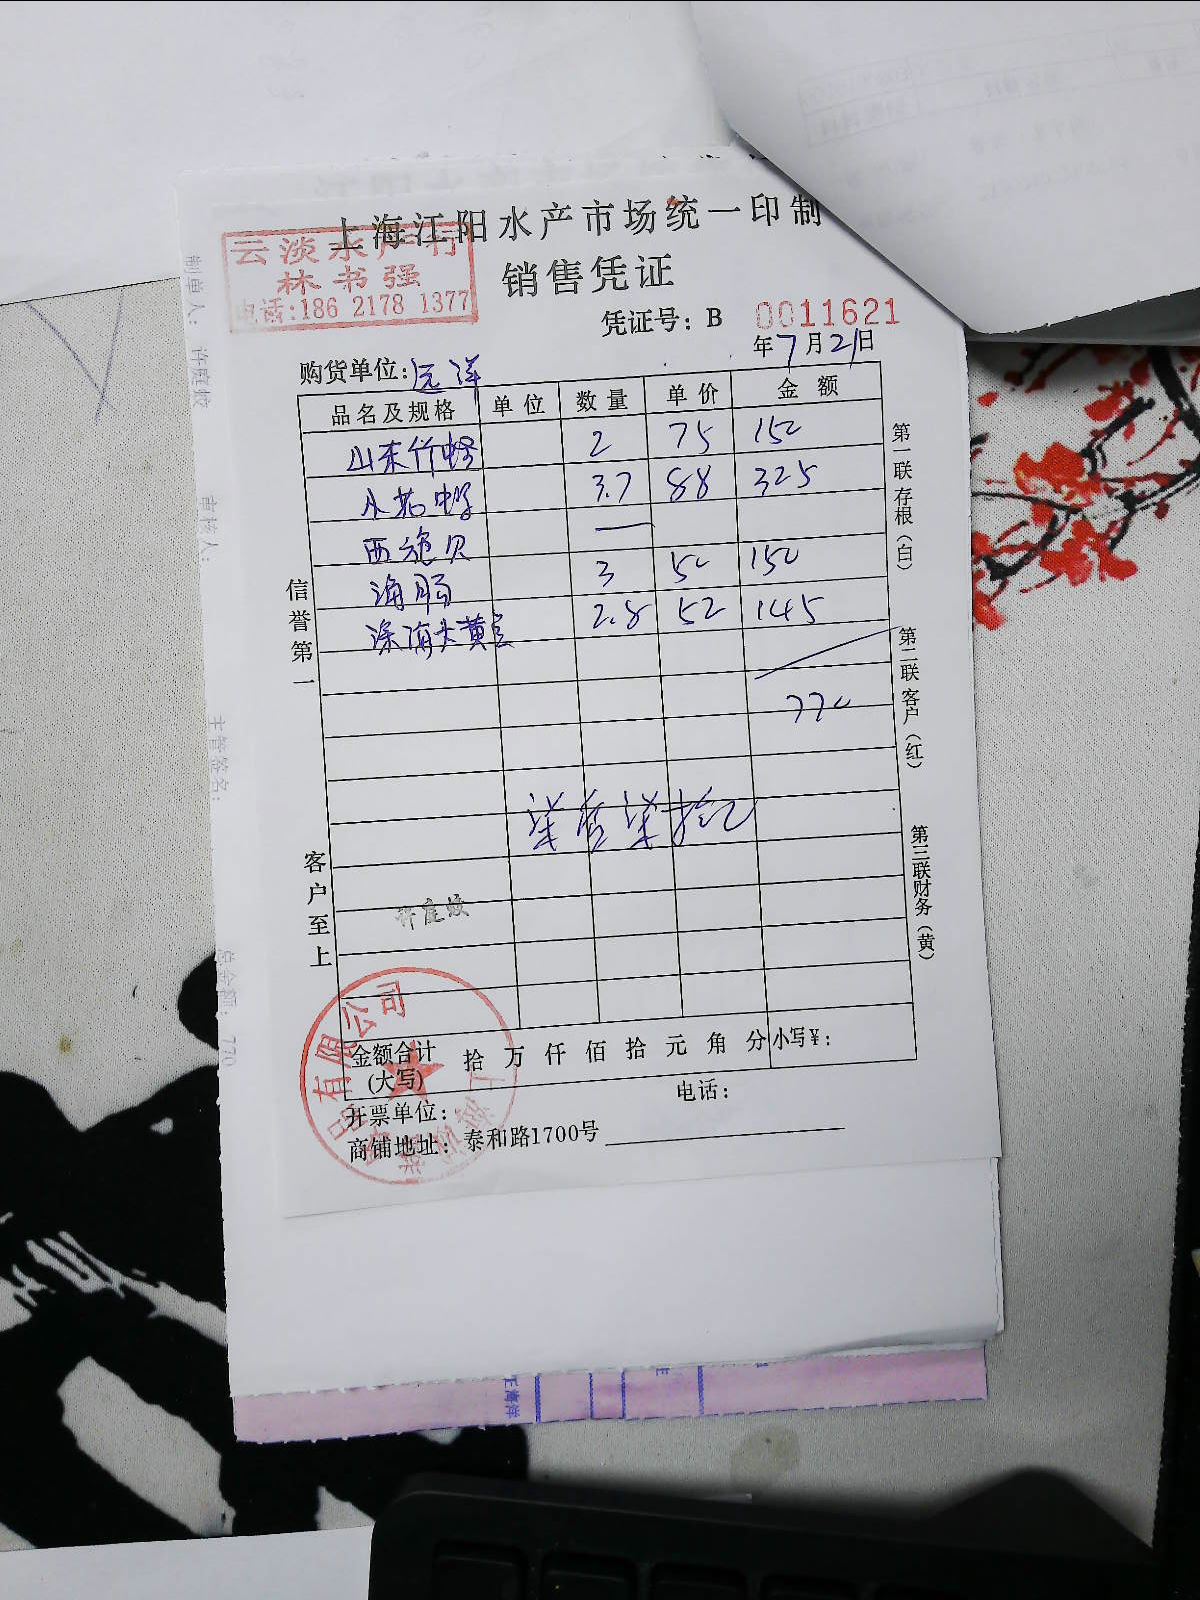 上海江阳水产市场统一印制
云淡水产行
林书强
电话:186 2178 1377
销售凭证
凭证号: B 0011621
年7月21日
购货单位:远洋
品名及规格 单位 数量 单价 金额
山东竹蛏 2 75 150
小花蛤 3.7 88 325
西施贝 —
海肠 3 50 150
深海大黄 2.8 52 145
770
柒佰柒拾元
信誉第一
客户至上
第一联存根(白)
第二联客户(红)
第三联财务(黄)
许庭蛟
金额合计(大写) 拾 万 仟 佰 拾 元 角 分 小写¥:
开票单位:
电话:
商铺地址: 泰和路1700号
有限公司
制单人: 许庭蛟
审核人:
主管签名:
总金额: 770